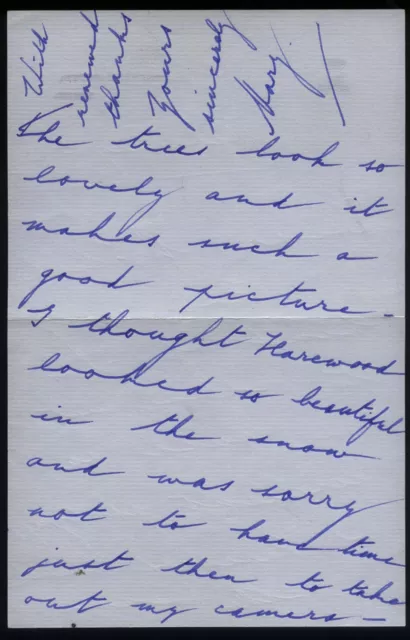 The trees look so
lovely and it
makes such a
good picture -
I thought Harewood
looked so beautiful
in the snow
and was sorry
not to have time
just then to take
out my camera -
With
renewed
thanks
Yours
sincerely
Mary.